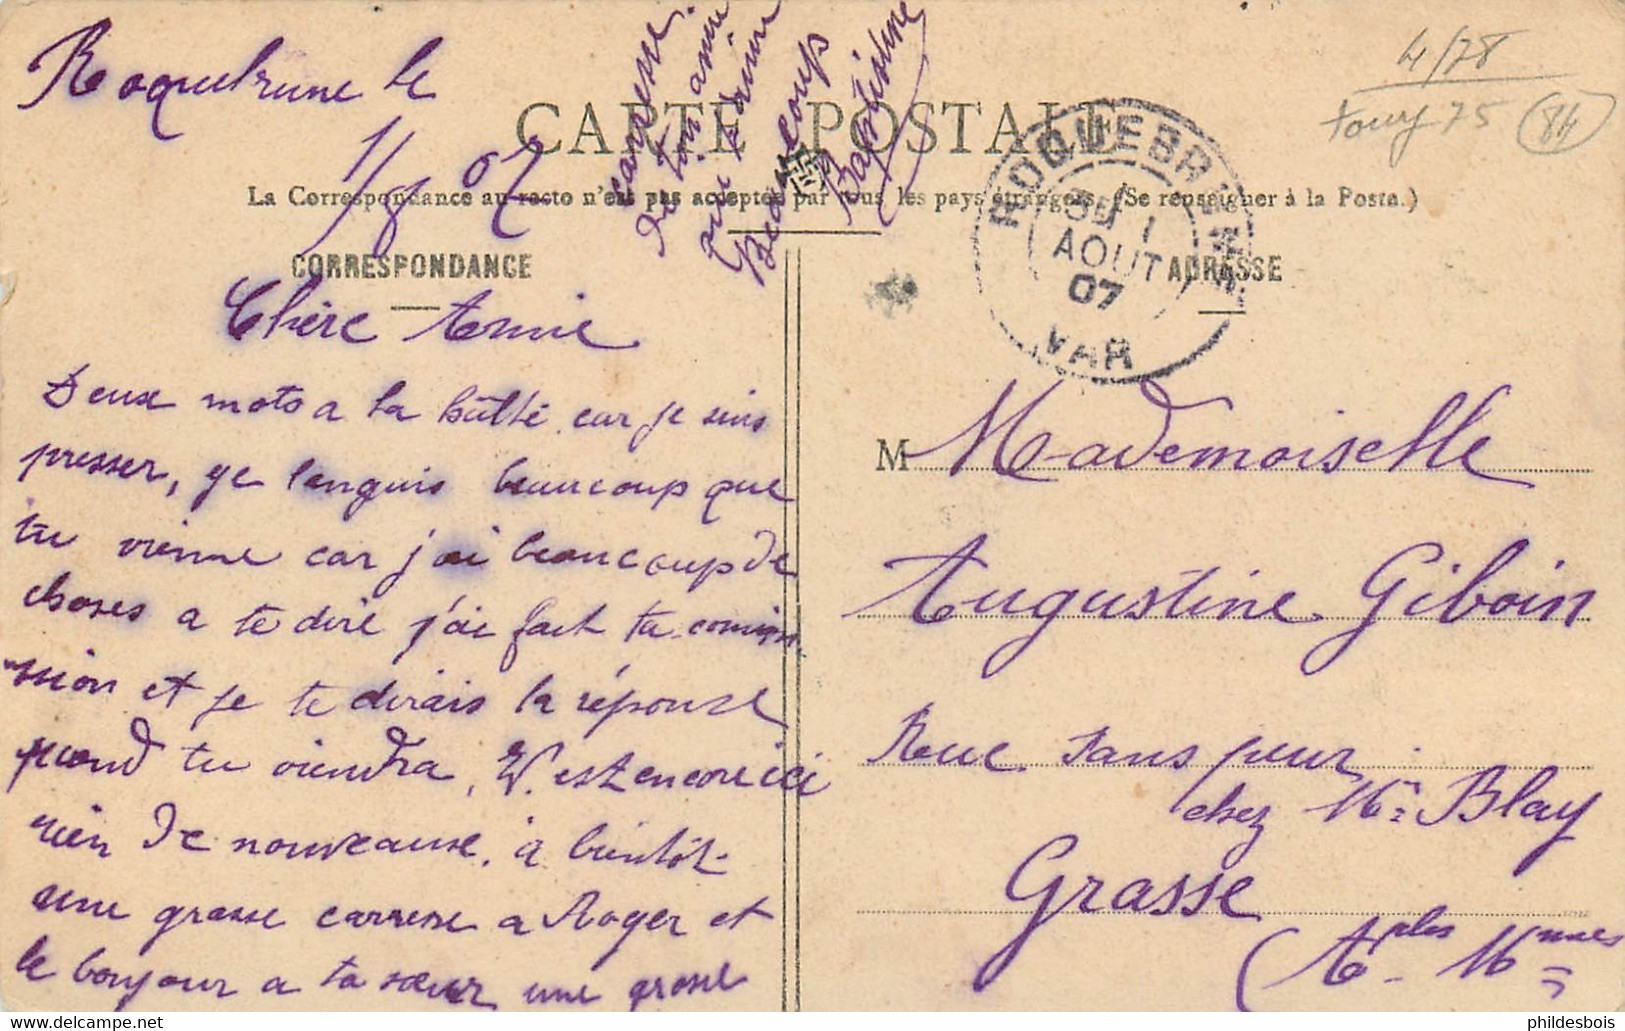 Roquebrune le
1/8 07
CARTE POSTALE
La Correspondance au recto n'est pas acceptée par tous les pays étrangers. (Se renseigner à la Poste.)
CORRESPONDANCE
Chère Amie
Deux mots a la hâtte car je suis
presser, ge languis beaucoup que
tu vienne car j'ai beaucoup de
choses a te dire j'ai fait ta commi
ssion et je te dirais la réponse
quand tu viendra, N'est encore ici
rien de nouveause. à bientôt
une grosse carresse a Roger et
le bonjour a ta sœur une grosse
carresse.
de ton amie
qui t'aime
Beaucoup
Baptistine
ROQUEBRUNE
3E / 1
AOUT
07
VAR
ADRESSE
M Mademoiselle
Augustine Giboin
Rue Sans peur
chez Mr Blay
Grasse
(Alpes Mmes
4/78
Touy 75 (84)
phildesbois